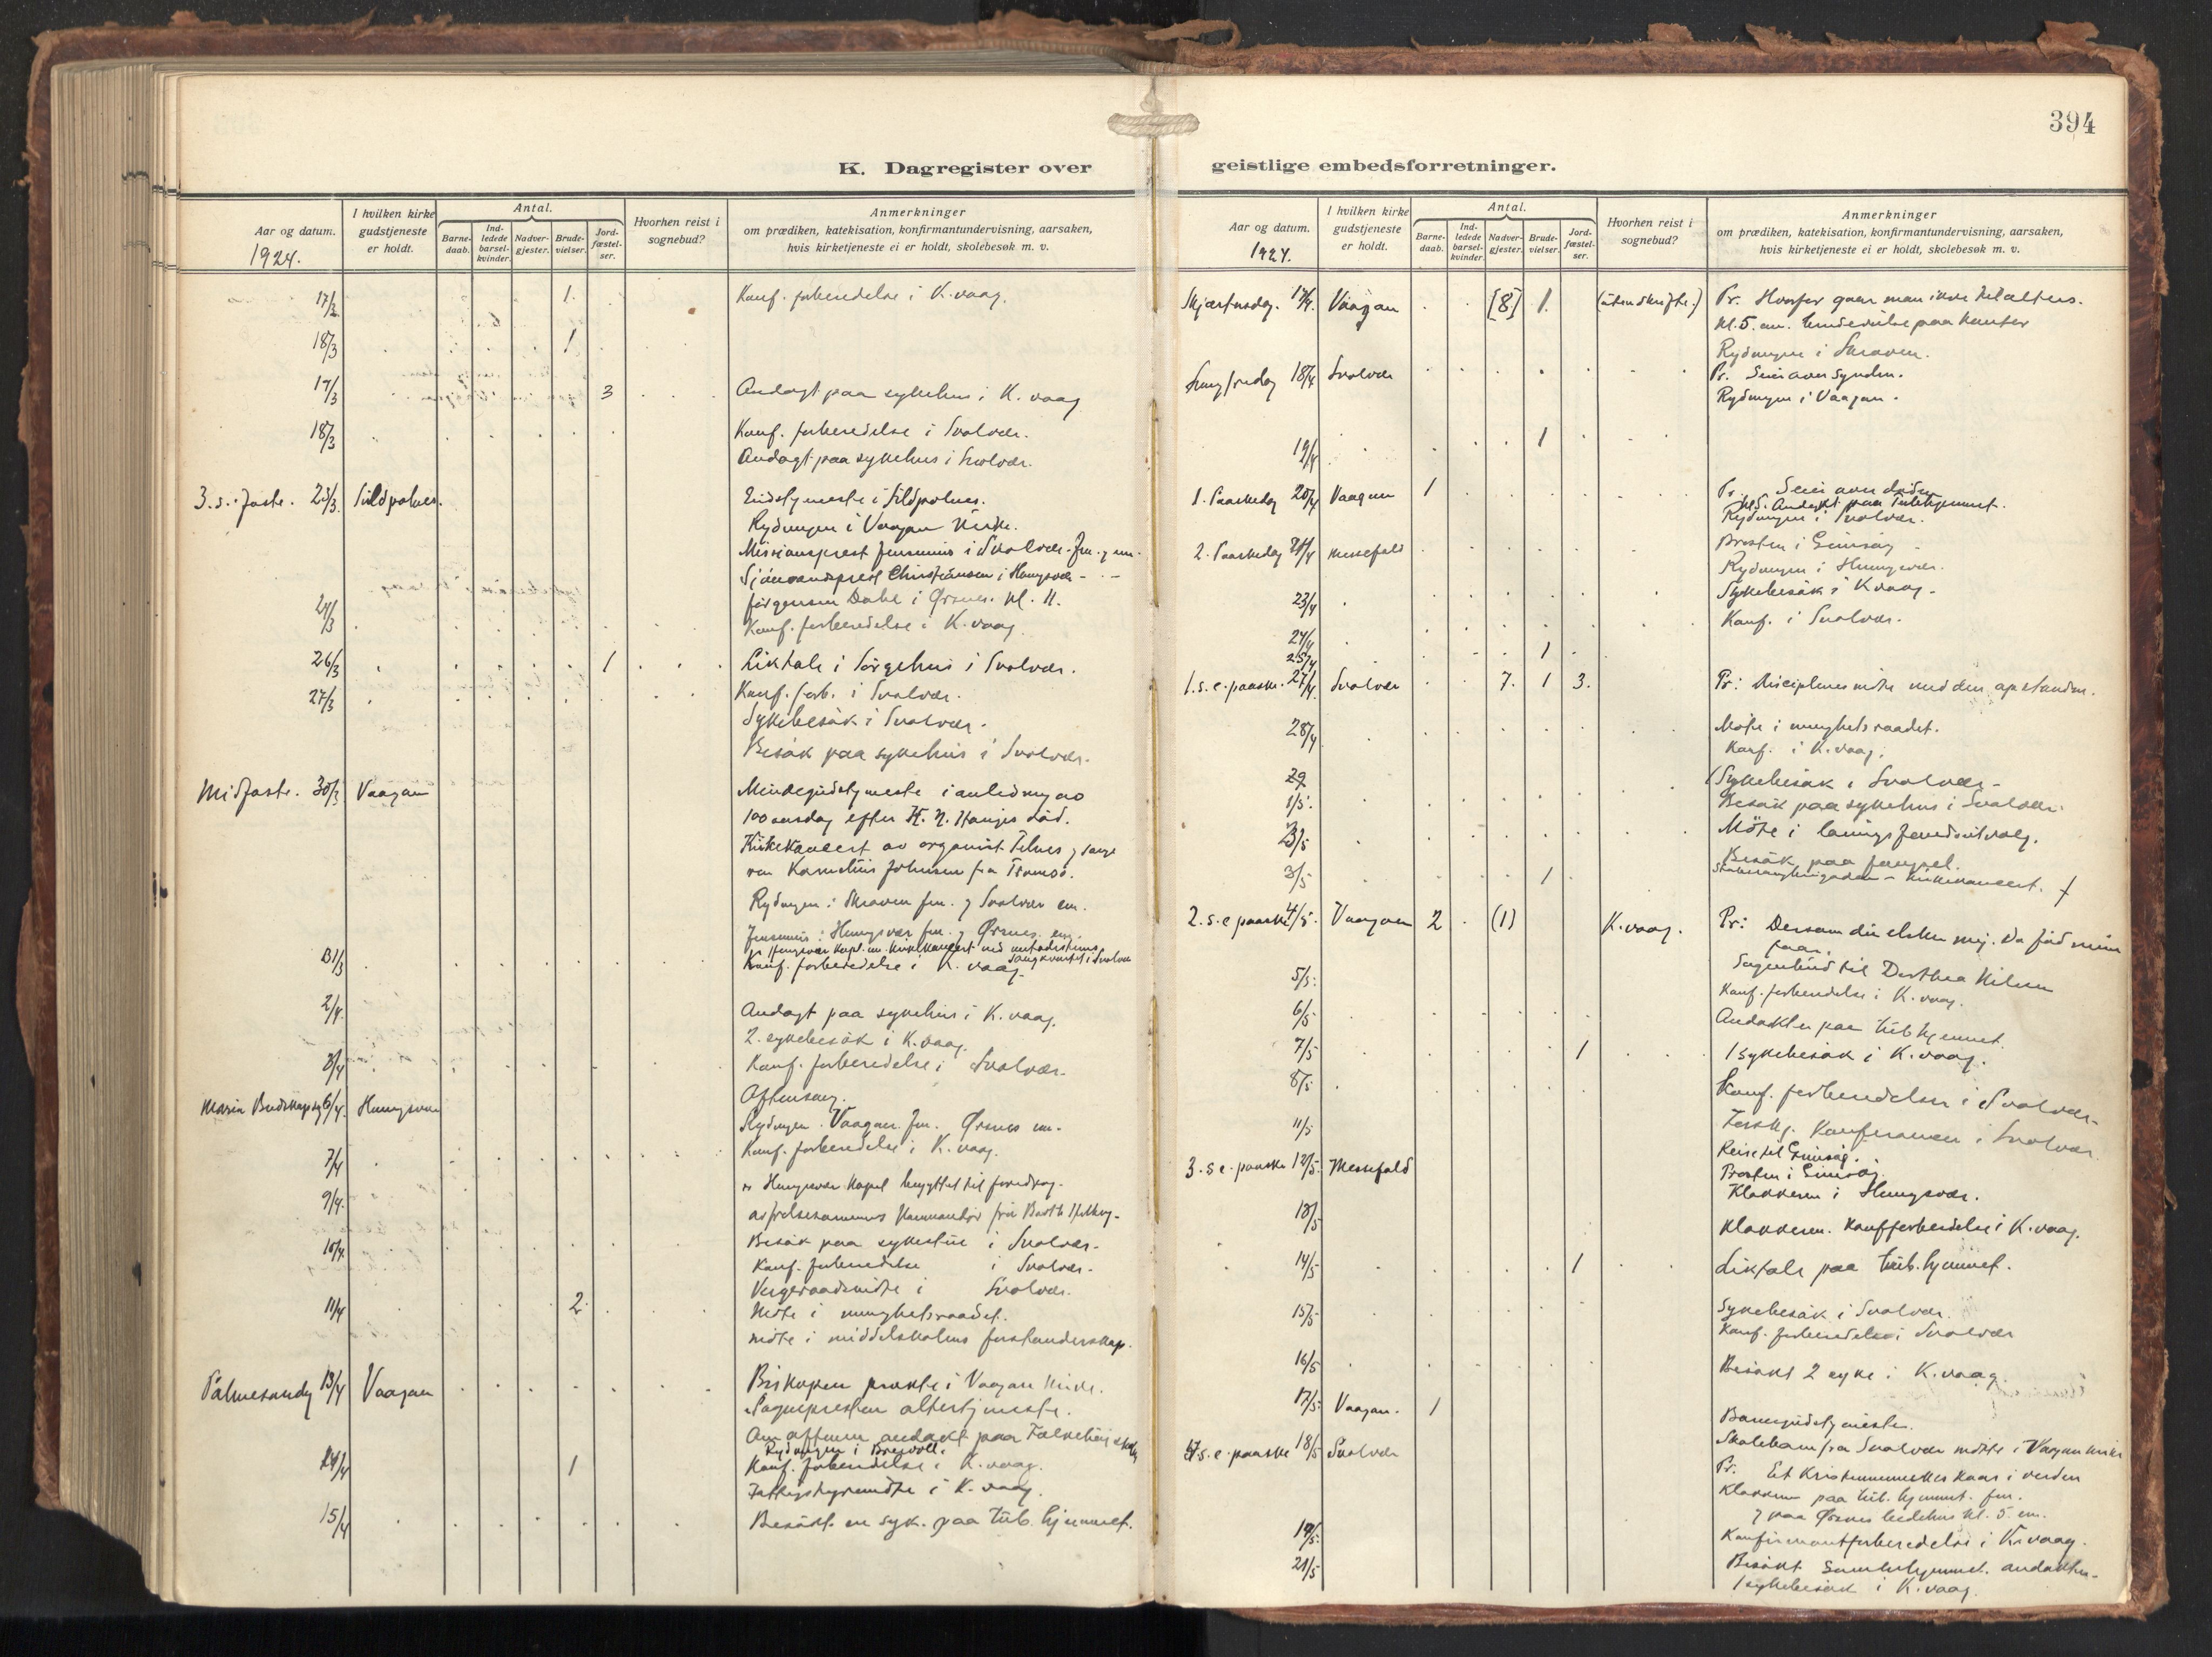 394
K. Dagregister over geistlige embedsforretninger.
Aar og datum.
1924.
I hvilken kirke gudstjeneste er holdt.
Antal.
Barne-daab.
Ind-ledede barsel-kvinder.
Nadver-gjester.
Brude-vielser.
Jord-fæstel-ser.
Hvorhen reist i sognebud?
Anmerkninger
om prædiken, katekisation, konfirmantundervisning, aarsaken,
hvis kirketjeneste ei er holdt, skolebesøk m. v.
17/3 1. Konf. forberedelse i K.vaag.
18/3 1
17/3 3 Andagt paa sykehus i K. vaag
18/3 Konf. forberedelse i Svolvær.
Andagt paa sykehus i Svolvær.
3. s. i faste. 23/3 Sildpolnes.
i Sildpolnes.
Rydningen i Vaagan Kirke.
Missionsprest i Svolvær fm. og em.
Sjömandsprest Christiansen i Henn­gsvær
Jörgensen Dahl i Ørsnes. kl. 11.
24/3 Konf. forberedelse i K. vaag
26/3 1 Liktale i Sörgehus i Svolvær.
27/3 Konf. forb. i Svolvær.
Sykebesök i Svolvær.
Besök paa sykehus i Svolvær.
Midfaste. 30/3 Vaagan Mindegudstjeneste i anledning av
100 aarsdag efter H. N. Hauges död.
Kirkekoncert av organist og sanger
Kornelius Johnsen fra Tromsö.
Rydningen i Skroven fm. og Svolvær em.
fm. og Ørsnes em.
31/3 Konf. forberedelse i K. vaag.
2/4. Andagt paa sykehus i K. vaag.
2. sykebesök i K.vaag.
3/4 Konf. forberedelse i Svolvær.
Maria Budskapsdg 6/4. Henningsvær Aftensang.
Rydningen Vaagan fm. Ørsnes em.
7/4 Konf. forberedelse i K. vaag.
Kapel benyttet til foredrag
9/4. av frelsesarmeens
10/4. Besök paa sykestue i Svolvær.
Konf. forberedelse i Svolvær.
Vergeraadsmöte i Svolvær.
11/4 2 Möte i menighetsraadet.
möte i middelskolens forstanderskap.
Palmesöndg 13/4 Vaagan Biskopen prækte i Vaagan Kirke.
Sognepresten altertjeneste.
Om aftenen andakt paa Folkehöiskole
Rydningen i
14/4 1 Konf. forberedelse i K. vaag.
Fattigstyremöte i K. vaag.
15/4 Besökt en syk. paa tub. hjemmet.
Aar og datum.
1924.
I hvilken kirke gudstjeneste er holdt.
Antal.
Barne-daab.
Ind-ledede barsel-kvinder.
Nadver-gjester.
Brude-vielser.
Jord-fæstel-ser.
Hvorhen reist i sognebud?
Anmerkninger
om prædiken, katekisation, konfirmantundervisning, aarsaken,
hvis kirketjeneste ei er holdt, skolebesøk m. v.
Skjærtorsdag. 17/4. Vaagan [8] 1. (uten skrifte.) Pr. Hvorfor gaar man ikke til alters.
Kl. 5. em. paa kontor
Rydningen i Skroven.
Langfredag 18/4 Svolvær Pr. Seier over synden.
Rydningen i Vaagan.
19/4 1
1. Paaskedag 20/4 Vaagan 1 Pr. Seier over döden
Kl. 5. Andakt paa Tub.hjemmet.
Rydningen i Svolvær.
2. Paaskedag 21/4 Messefald Prosten i Gimsöy
Rydningen i Henningsvær.
23/4 Sykebesök i K.vaag.
24/4 Konf. i Svolvær.
25/4 1
1. s. e. paaske. 27/4 Svolvær 7. 1 3. Pr: Disciplenes möte med den opstandne.
28/4 Möte i menighetsraadet.
Konf. i K. vaag.
29 Sykebesök i Svolvær.
1/5. Besök paa sykehus i Svolvær.
2/5 Möte i
Besök paa fengsel.
3/5 1 Kirkekoncert.
2. s. e paaske 4/5. Vaagan 2 (1) K. vaag. Pr: Dersom du elsker mig. Da fød mine
faar.
Sognebud til Dorthea Nilsen
5/5. Konf. forberedelse i K. vaag.
6/5 Andakt paa tub hjemmet.
7/5 1 1 sykebesök i K. vaag.
8/5 Konf. forberedelse i Svolvær.
11/5 i Svolvær
Reise til Gimsöy.
3. s e. paaske 12/5. Messefald Prosten i Gimsöy.
Klokkeren i Henningsvær.
13/5 Klokkeren. Konfforberedelse i K. vaag.
14/5 1 Liktale paa tub. hjemmet.
15/5 Sykebesök i Svolvær.
Konf. forberedelse i Svolvær
16/5 Besökt 2 syke i K. vaag.
17/5 Vaagan. 1 Barnegudstjeneste.
Skolebarn fra Svolvær mötte i Vaagan kirke
4. s. e. paaske 18/5 Svolvær Pr. Et Kristenmenneskes kaar i verden
Klokkeren paa tub. hjemmet. fm.
og paa Ørsnes bedehus kl. 5. em.
19/5. Konfirmantforberedelse i K. vaag.
21/5 Besökt andakt
1 sykebesök i K. vaag.